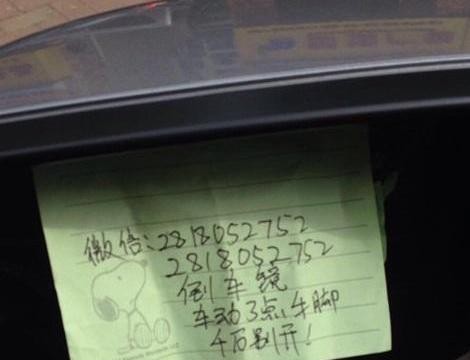 微信:2818052752
2818052752
倒车镜
车动3点,手脚
千万别开!